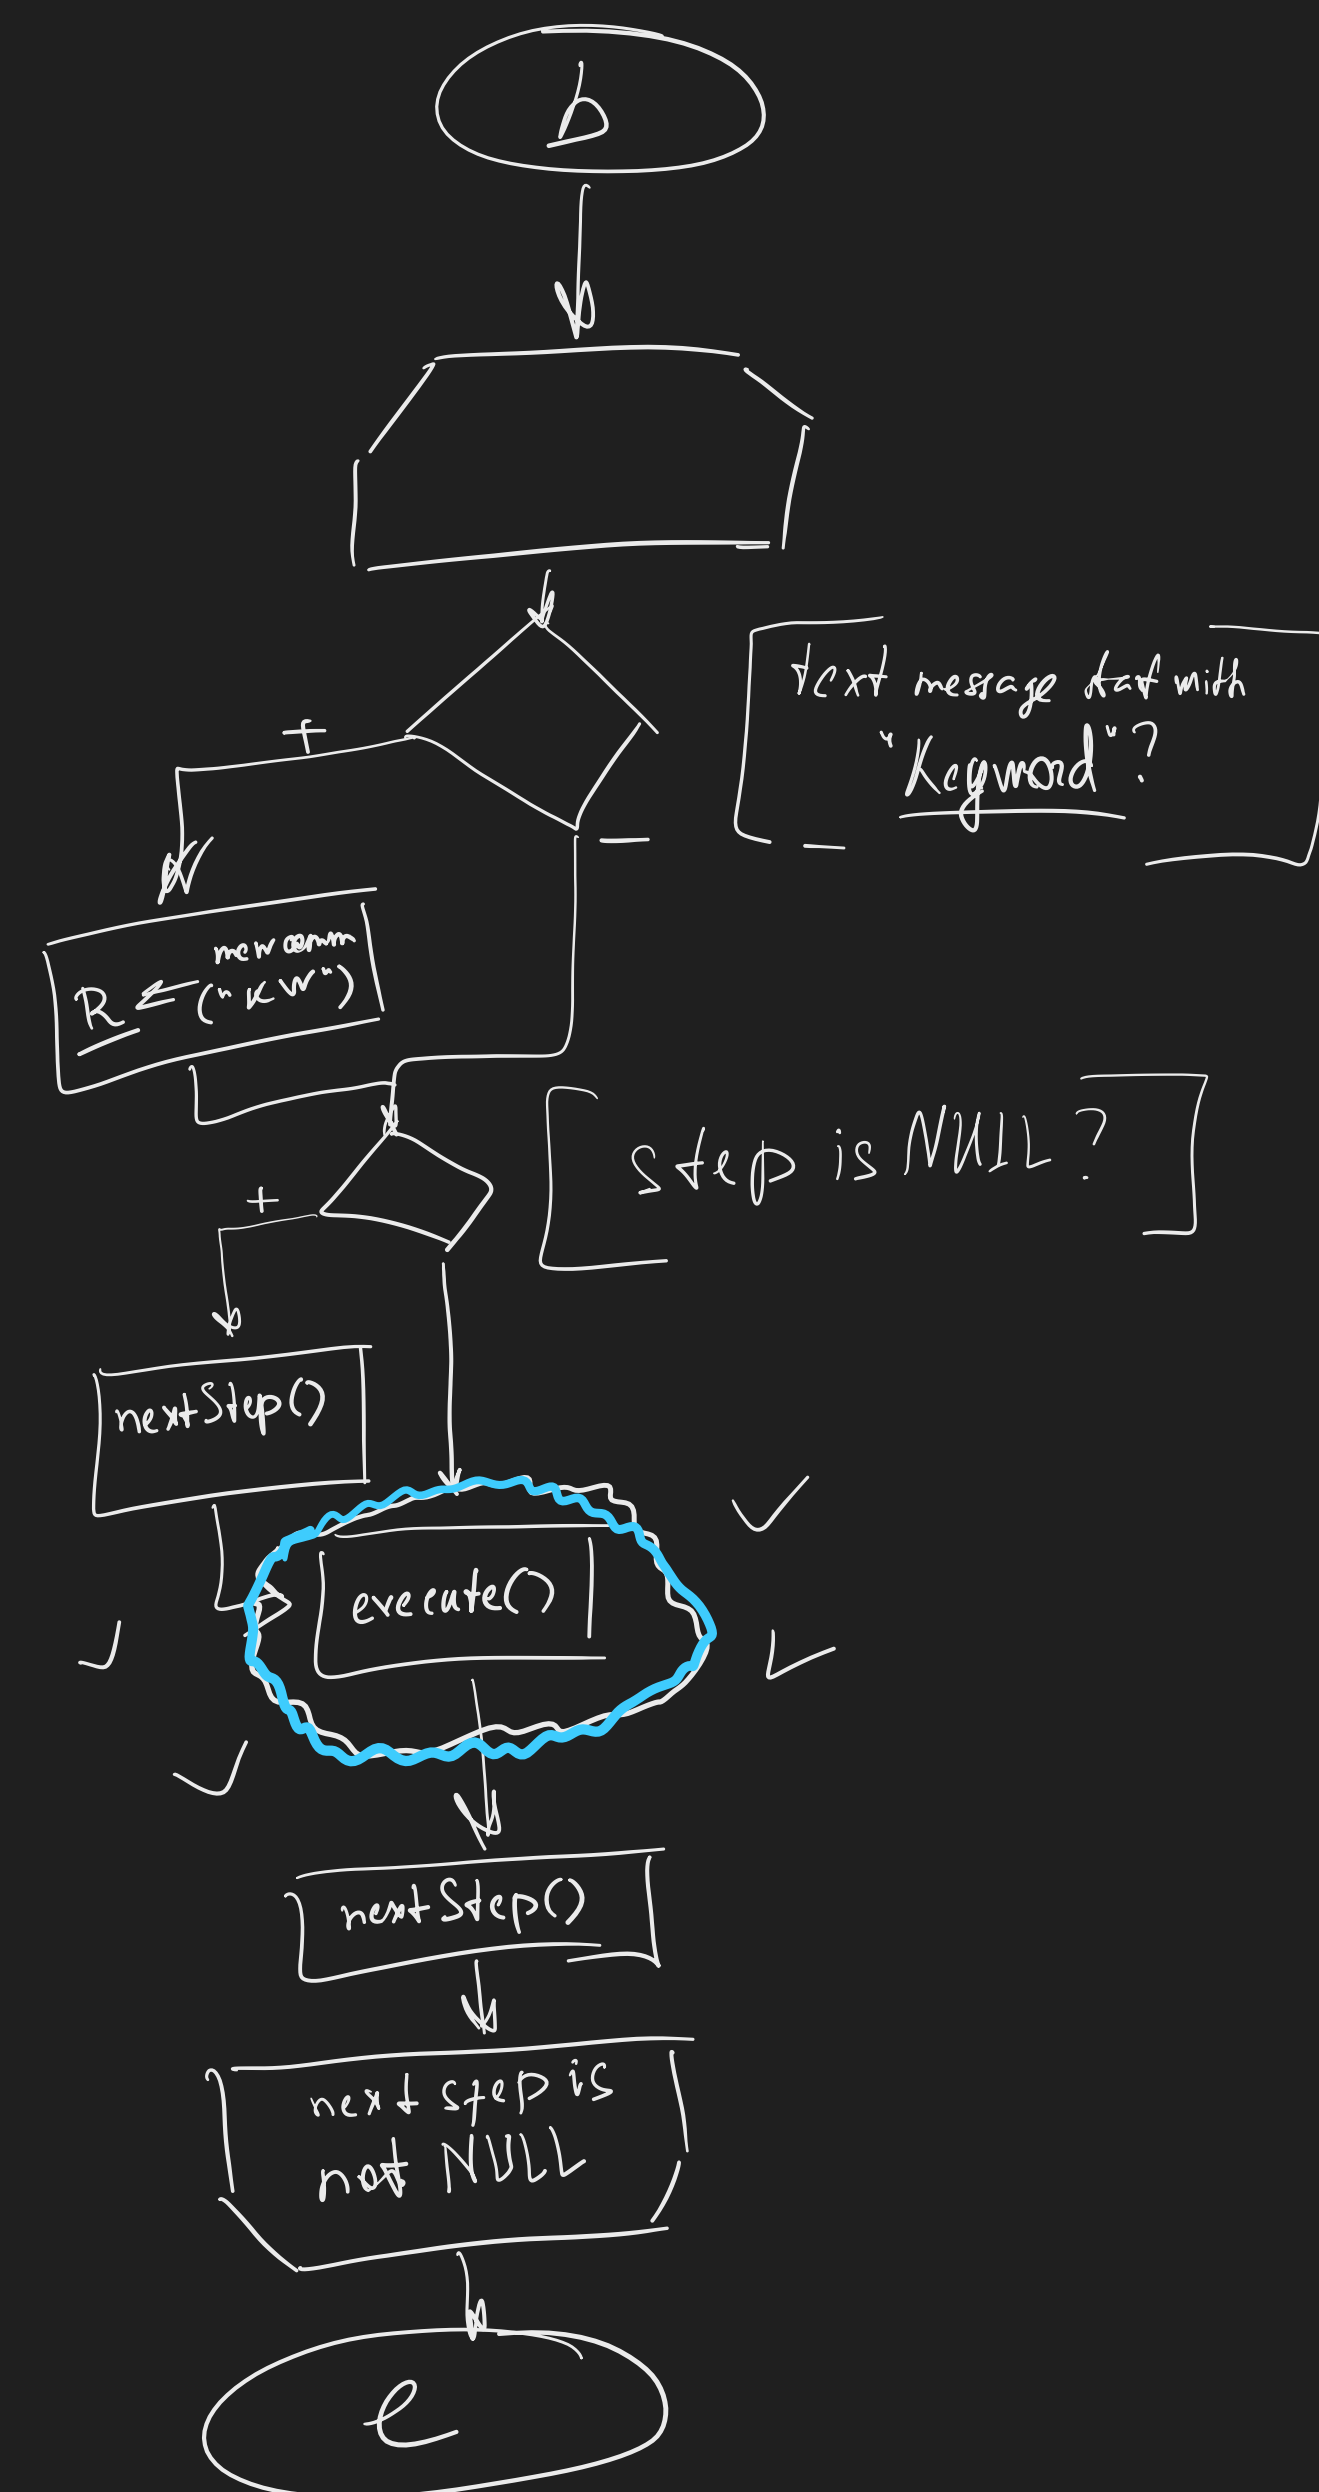 b
text message start with
"Keyword"?
+
—
new comm
R ← ("KW")
step is NULL?
+
nextStep()
execute()
nextStep()
next step is
not NULL
e